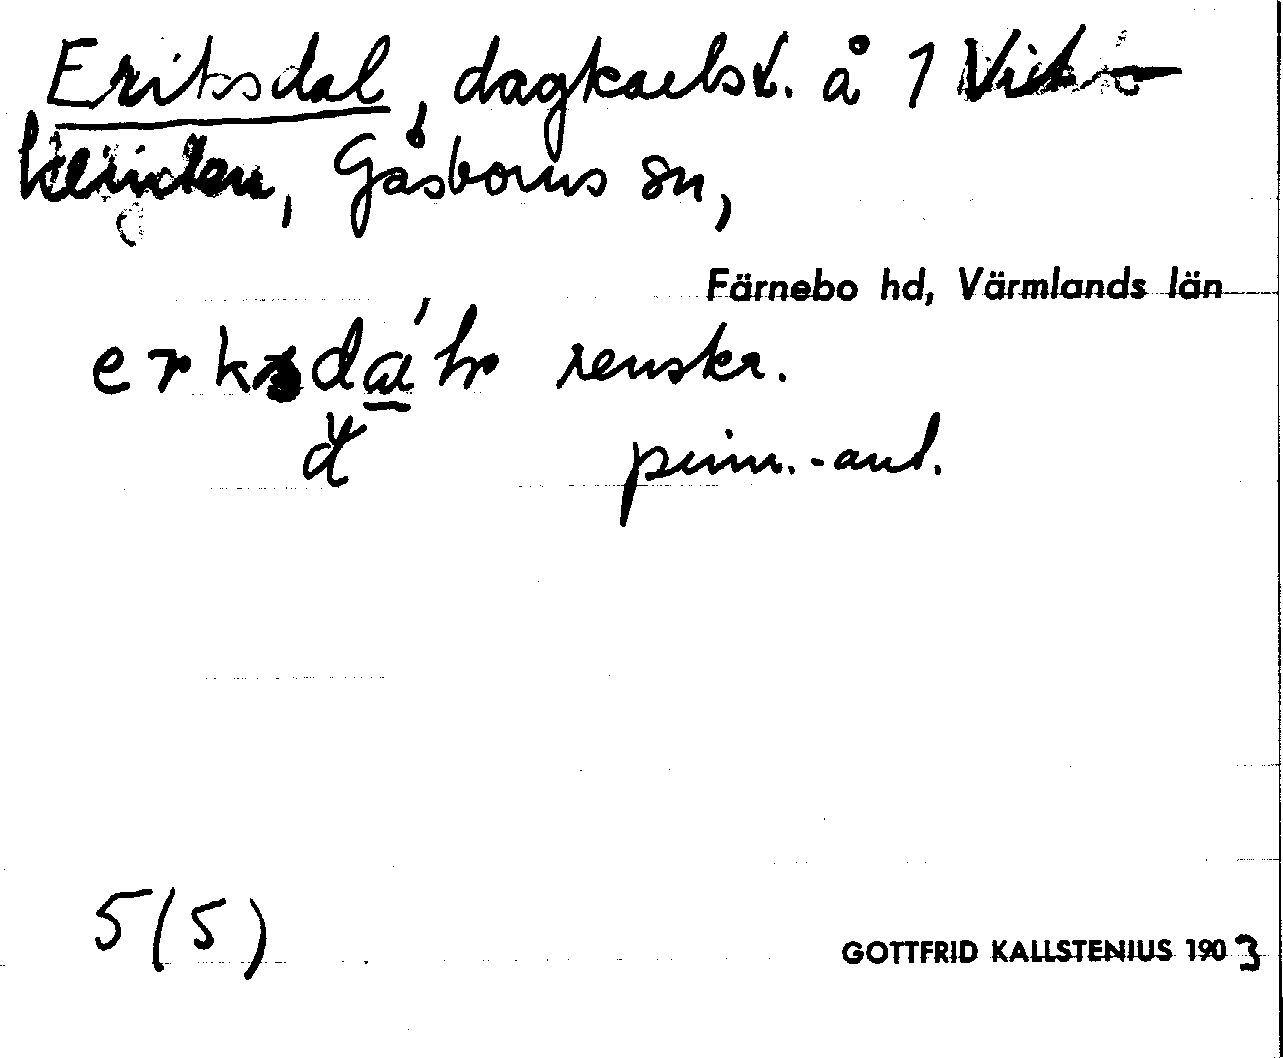 Eriksdal, dagkarlst. å 1 Vit-
klinten, Gåsborns sn,
Färnebo hd, Värmlands län
renskr.
prim.-ant.
5(5)
GOTTFRID KALLSTENIUS 1903